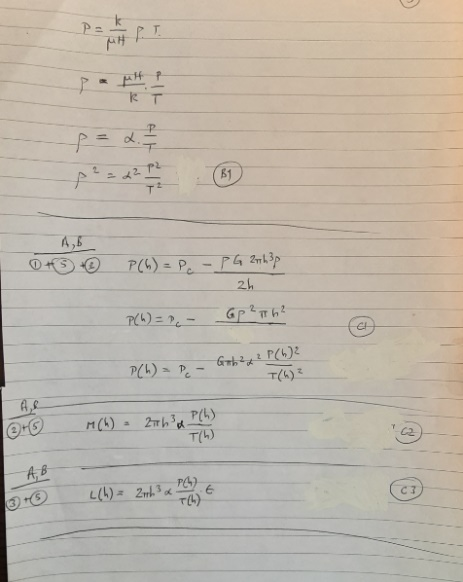 P = k/μH ρ. T.
ρ = μH/k . P/T
ρ = α. P/T
ρ² = α² P²/T² (B1)
A, B
① + ⑤ + ② P(h) = Pc - ρ G 2πh³ρ / 2h
P(h) = Pc - Gρ² πh² (C1)
P(h) = Pc - Gπh² α² P(h)²/T(h)²
② + ⑤ M(h) = 2πh³ α P(h)/T(h) (C2)
A, B
③ + ⑤ L(h) = 2πh³ α P(h)/T(h) ϵ